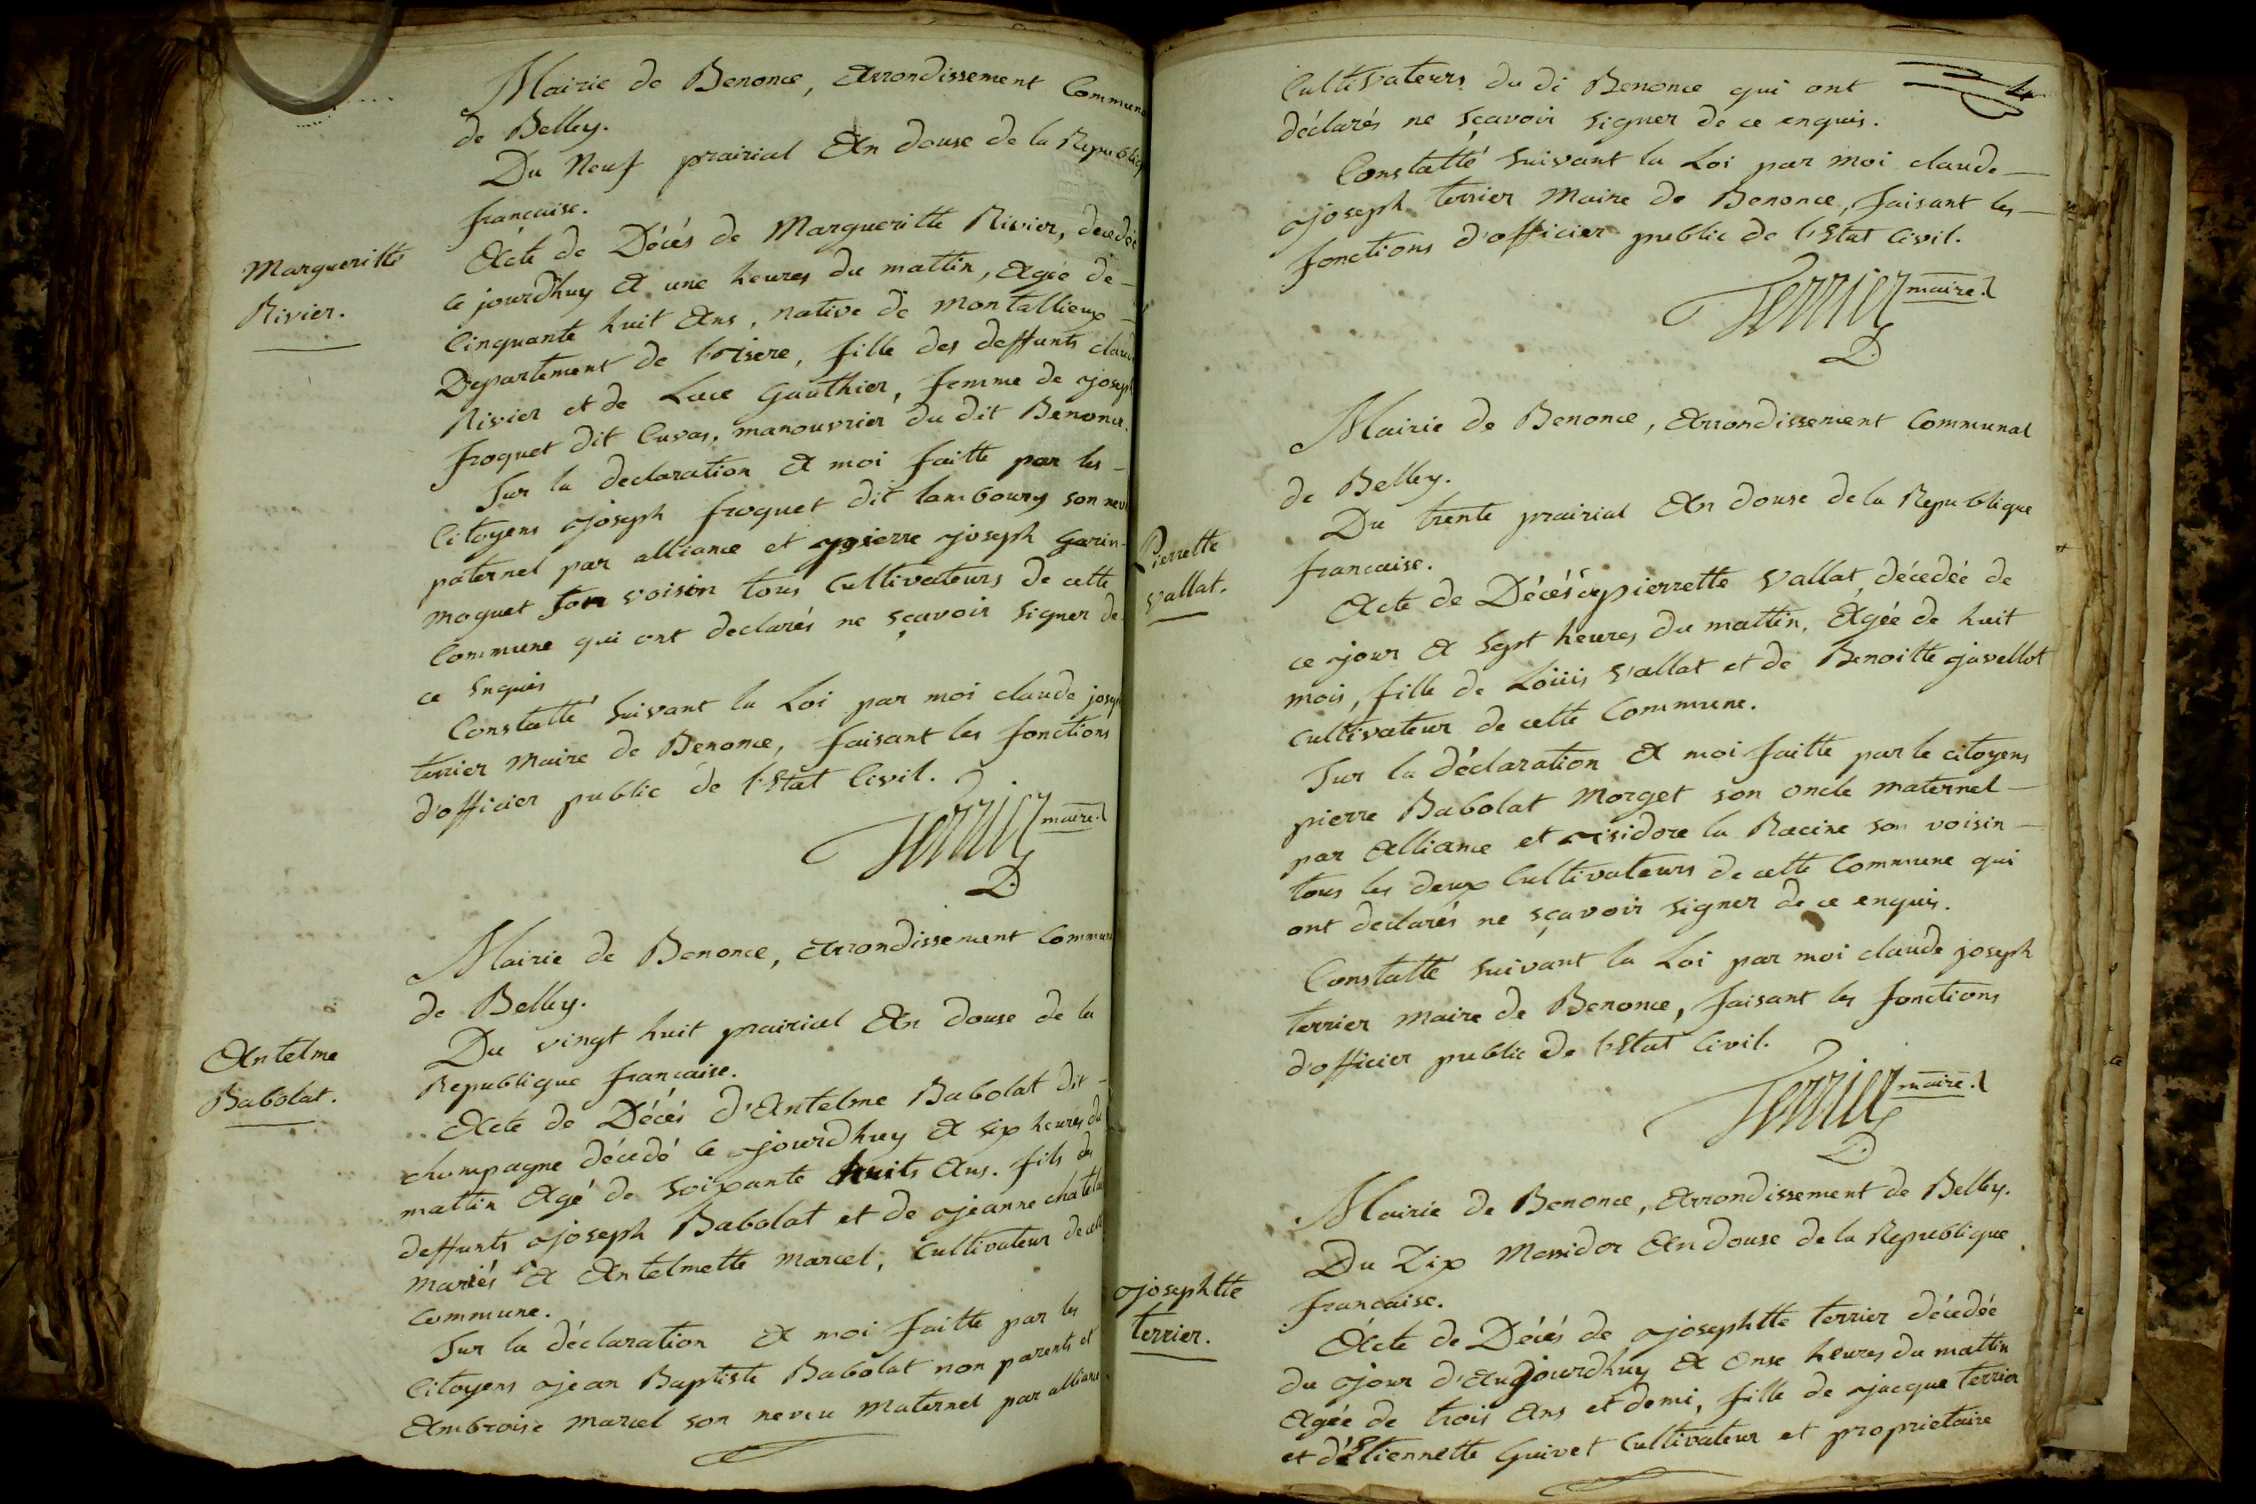 Mairie de Benonce, Arrondissement Commun
de Belley.
Du Neuf prairial An douse de la Republiq
francaise.
Margueritte
Rivier.
Acte de Décés de Margueritte Rivier, decedée
ce jourdhuy A une heures du mattin, Agée de
Cinquante huit Ans, native de montallieux
Departement de l'isere, fille des deffunts claud
Rivier et de Luce Gauthier, femme de joseph
froquet dit Cuvas, manouvrier du dit Benonce.
Sur la declaration A moi faitte par les
Citoyens joseph froquet dit lamboury son nev
paternel par alliance et pierre joseph Garin
moquet son voisin tous Cultivateurs de cette
Commune qui ont declarés ne sçavoir signer de
ce Enquis
Constatté suivant la Loi par moi claude josep
terrier Maire de Benonce, faisant les fonctions
d'officier public de l'Etat Civil.
Terrier maire.
Mairie de Benonce, Arrondissement Commun
de Belley.
Du vingt huit prairial An douse de la
Republique francaise.
Antelme
Babolat.
Acte de Décés d'Antelme Babolat dit
champagne décédé ce jourdhuy A six heures du
mattin Agé de soixante huits Ans. fils des
deffunts joseph Babolat et de jeanne chatel
mariés A Antelmette marcel, Cultivateur de cette
Commune.
Sur la déclaration A moi faitte par les
Citoyens jean Baptiste Babolat non parents et
Ambroise marcel son neveu maternel par alliance
4
Cultivateurs du di Benonce qui ont
déclarés ne sçavoir signer de ce enquis.
Constatté suivant la Loi par moi claude
joseph terrier Maire de Benonce, faisant les
fonctions d'officier public de l'Etat Civil.
Terrier maire.
Mairie de Benonce, Arrondissement Communal
de Belley.
Du trente prairial An douse de la Republique
francaise.
Pierrette
vallat.
Acte de Décés de pierrette vallat, décedée de
ce jour A sept heures du mattin, Agée de huit
mois, fille de Loüis vallat et de Benoitte javellot
cultivateur de cette Commune.
Sur la déclaration A moi faitte par le citoyens
pierre Babolat Morget son oncle maternel
par Alliance et isidore la Racine son voisin
tous les deux Cultivateurs de cette Commune qui
ont declarés ne sçavoir signer de ce enquis.
Constatté suivant la Loi par moi claude joseph
terrier Maire de Benonce, faisant les fonctions
d'officier public de l'Etat Civil.
Terrier maire.
Mairie de Benonce, Arrondissement de Belley.
Du Dix Messidor An douse de la Republique
francaise.
josephtte
terrier.
Acte de Décés de josephtte terrier décedée
du jour d'Aujourdhuy A Onse heures du mattin
Agée de trois Ans et demi, fille de jacque terrier
et d'Etiennette Guivet Cultivateur et proprietaire